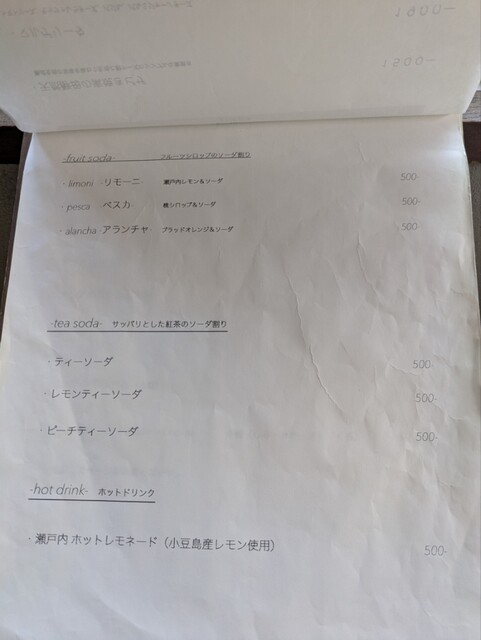 -fruit soda- フルーツシロップのソーダ割り
・limoni -リモーニ- 瀬戸内レモン&ソーダ 500-
・pesca -ペスカ- 桃シロップ&ソーダ 500-
・alancha -アランチャ- ブラッドオレンジ&ソーダ 500
-tea soda- サッパリとした紅茶のソーダ割り
・ティーソーダ 500-
・レモンティーソーダ 500-
・ピーチティーソーダ 500-
-hot drink- ホットドリンク
・瀬戸内 ホットレモネード（小豆島産レモン使用） 500-